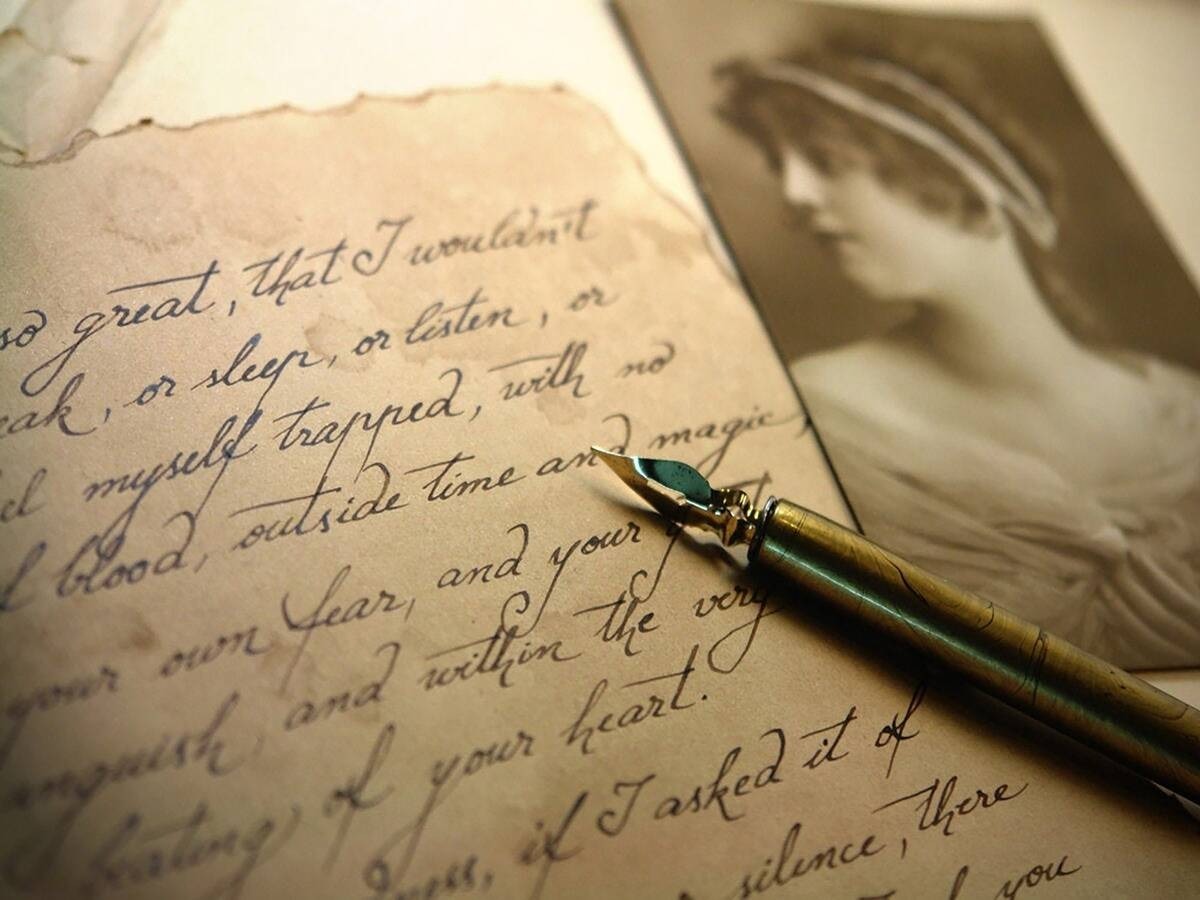 so great, that I wouldn't
or sleep, or listen, or
myself trapped, with no
blood, outside time and magic,
your own fear, and your
anguish, and within the very
beating, of your heart.
if I asked it of
silence, there
you